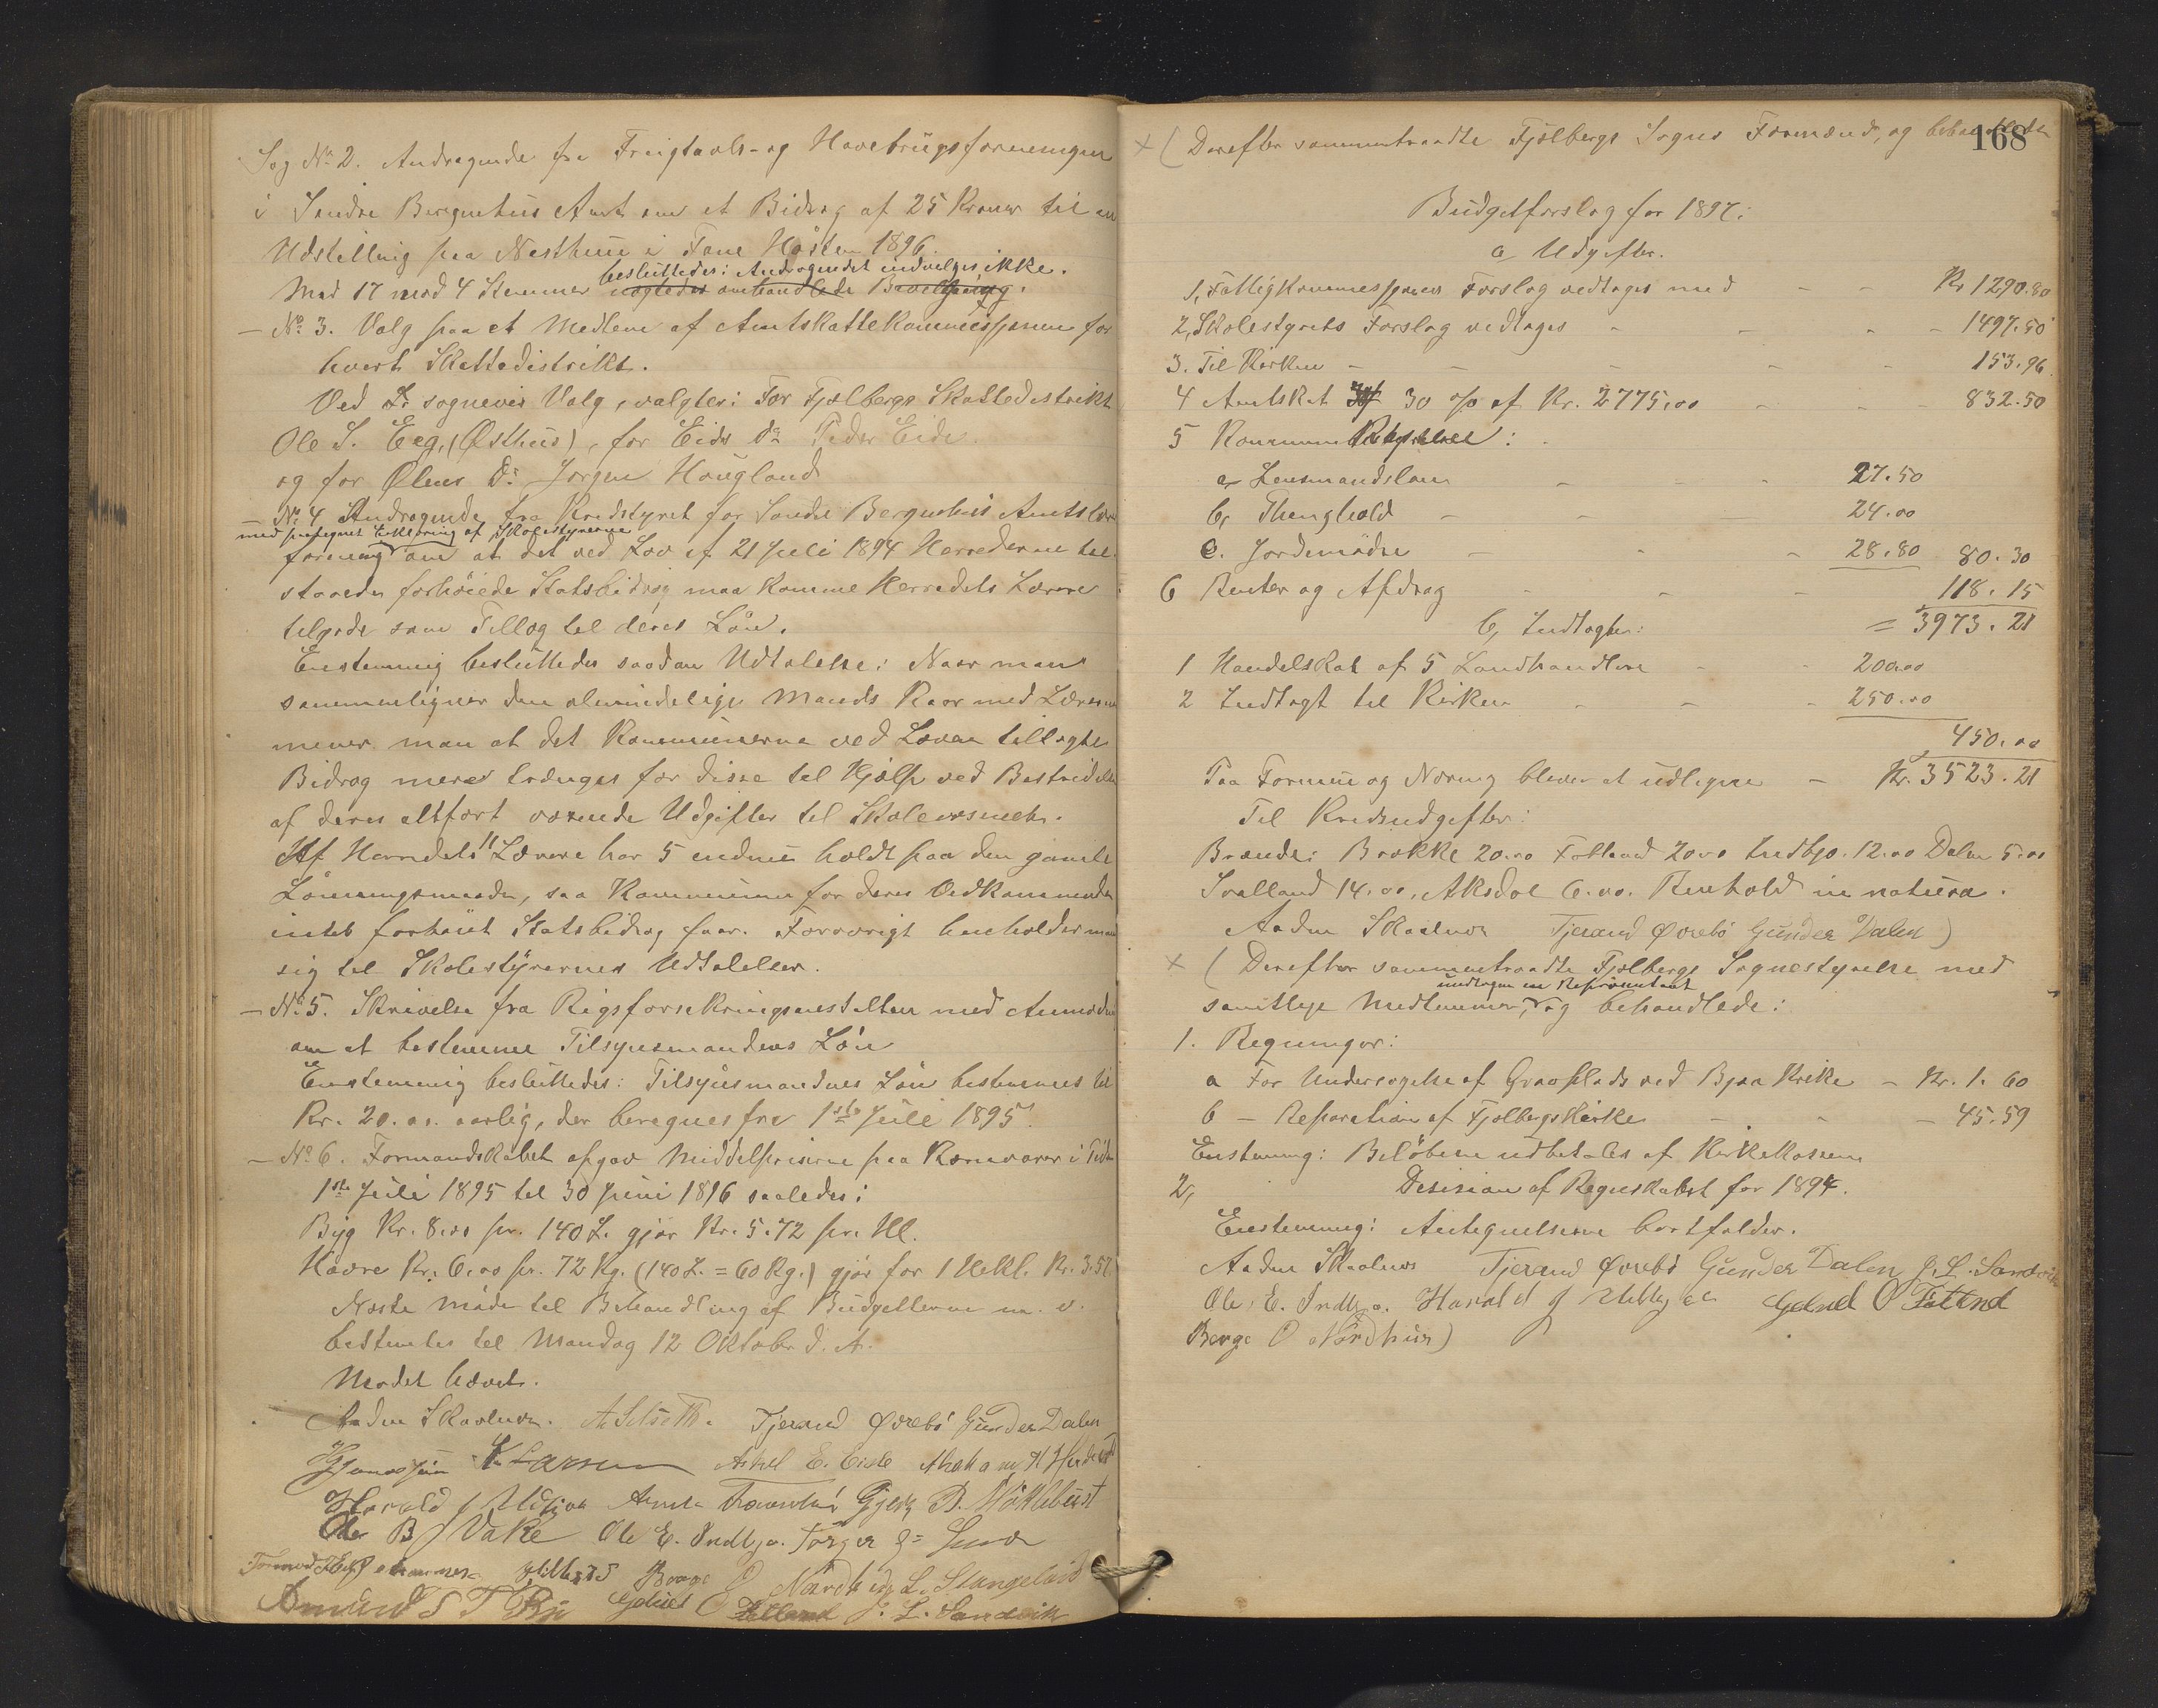 Sag No 2. Andragende fra Frugtavls- og Havebrugsforeningen
i Søndre Bergenhus Amt om et Bidrag af 25 Kroner til en
Udstilling paa Nesttun i Fane Høsten 1896.
besluttedes: Andragendet indvilges ikke.
Med 17 mod 4 Stemmer nægtedes omhandlede Bevilgning.
— No 3. Valg paa et Medlem af Amtsskattekommissjonen for
hvert Skattedistrikt.
Ved sognevis Valg, valgtes: For Fjelbergs Skattedistrikt
Ole S. Eeg, (Østhus), for Eids do Peder Eide
og for Ølens do Jørgen Hougland
— No 4 Andragende fra Kredsstyret for Søndre Bergenhus Amts Lærer
med paategnet Erklæring af Skolestyrerne
forening om at det ved Lov af 21 Juli 1894 Herrederne til
staaede forhøiede Statsbidrag maa komme Herredets Lærere
tilgode som Tillæg til deres Løn.
Enstemmig besluttedes saadan Udtalelse: Naar man
sammenligner den almindelige Mands Kaar med Lærernes
mener man at det Kommunerne ved Loven tillagte
Bidrag mere trænges for disse til Hjælp ved Bestridelse
af deres altfort voxende Udgifter til Skolevæsenet.
Af Herredets 11 Lærere har 5 endnu holdt paa den gamle
Lønningsmaade, saa Kommunen for deres Vedkommende
intet forhøiet Statsbidrag faar. Forøvrigt henholder man
sig til Skolestyrernes Udtalelser.
— No 5. Skrivelse fra Rigsforsikringsanstalten med Anmodn
om at bestemme Tilsynsmandens Løn
Enstemmig besluttedes: Tilsynsmandens Løn bestemmes til
Kr. 20.00 aarlig, der beregnes fra 1ste Juli 1895.
— No 6. Formandskabet opgav Middelpriserne paa Kornvarer i Tiden
1ste Juli 1895 til 30 Juni 1896 saaledes:
Byg Kr. 8.00 pr. 140 L. gjør Kr. 5.72 pr. Hl.
Havre Kr. 6.00 pr. 72 Kg. (140 L. = 60 Kg.) gjør for 1 Hektl. Kr. 3.57.
Næste Møde til Behandling af Budgetterne m. v.
bestemtes til Mandag 12 Oktober d. A.
Mødet hævet.
Aadne Skaalnes. A. Sebøth. Tjerand Øvrebø Gunder Dalen
K Larsen Askel E. Eide
Harald J Gjert B. Møklebust
Ole B Vake Ole E. Indbjo. Torger J. Lunde
Berge O Nordhus L. Stangeland
Amund S T Bu Gdmd O Følland J. L. Sandvik
168
× ( Derefter sammentraadte Fjelbergs Sogns Formænd, og behandlede
Budgetforslag for 1897:
a Udgifter.
1, Fattigkommissjonens Forslag vedtages med - - Kr 1290.80
2, Skolestyrets Forslag vedtages - - - 1497.50
3. Til Kirken - - - 153.96
4 Amtskat 30 % af Kr. 2775,00 - - 832.50
5 Kommunekassen:
a, Lensmandsløn - - 27.50
b, Thinghold - - 24.00
c. Jordemødre - - 28.80 80.30
6 Renter og Afdrag - - 118.15
b, Indtægter: = 3973.21
1 Handelskat af 5 Landhandlere - - 200.00
2 Indtægt til Kirken - - 250.00
450.00
Paa Formue og Næring bliver at udligne - Kr. 3523.21
Til Kredsudgifter:
Brænde: Brekke 20.00 Følland 20.00 Indbjo. 12.00 Dalen 5.00
Svalland 14.00, Aksdal 6.00. Renhold in natura.
Aadne Skaalnes Tjerand Øvrebø Gunder Dalen )
× ( Derefter sammentraadte Fjelbergs Sognestyrelse med
undtagen en Repræsentant
samtlige Medlemmer, og behandlede:
1. Regninger:
a For Undersøgelse af Gravplads ved Bjoa Kirke - Kr. 1.60
b — Reparation af Fjelbergs Kirke - - 45.59
Enstemmig: Beløbene udbetales af Kirkekassen
2, Desision af Regnskabet for 1894.
Enstemmig: Antegnelserne bortfalder.
Aadne Skaalnes Tjerand Øvrebø Gunder Dalen J. L. Sandvik
Ole E. Indbjo. Harald J Gdmd O Følland
Berge O Nordhus)